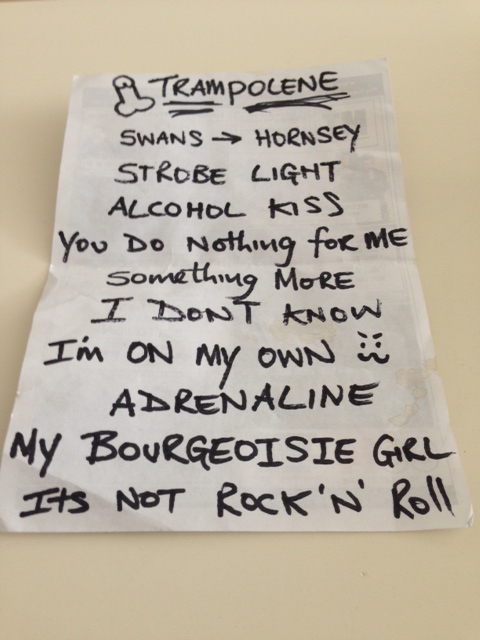 TRAMPOLENE
SWANS → HORNSEY
STROBE LIGHT
ALCOHOL KISS
You Do Nothing for ME
Something MORE
I DON'T KNOW
I'm ON MY OWN
ADRENALINE
MY BOURGEOISIE GIRL
ITS NOT ROCK 'N' Roll